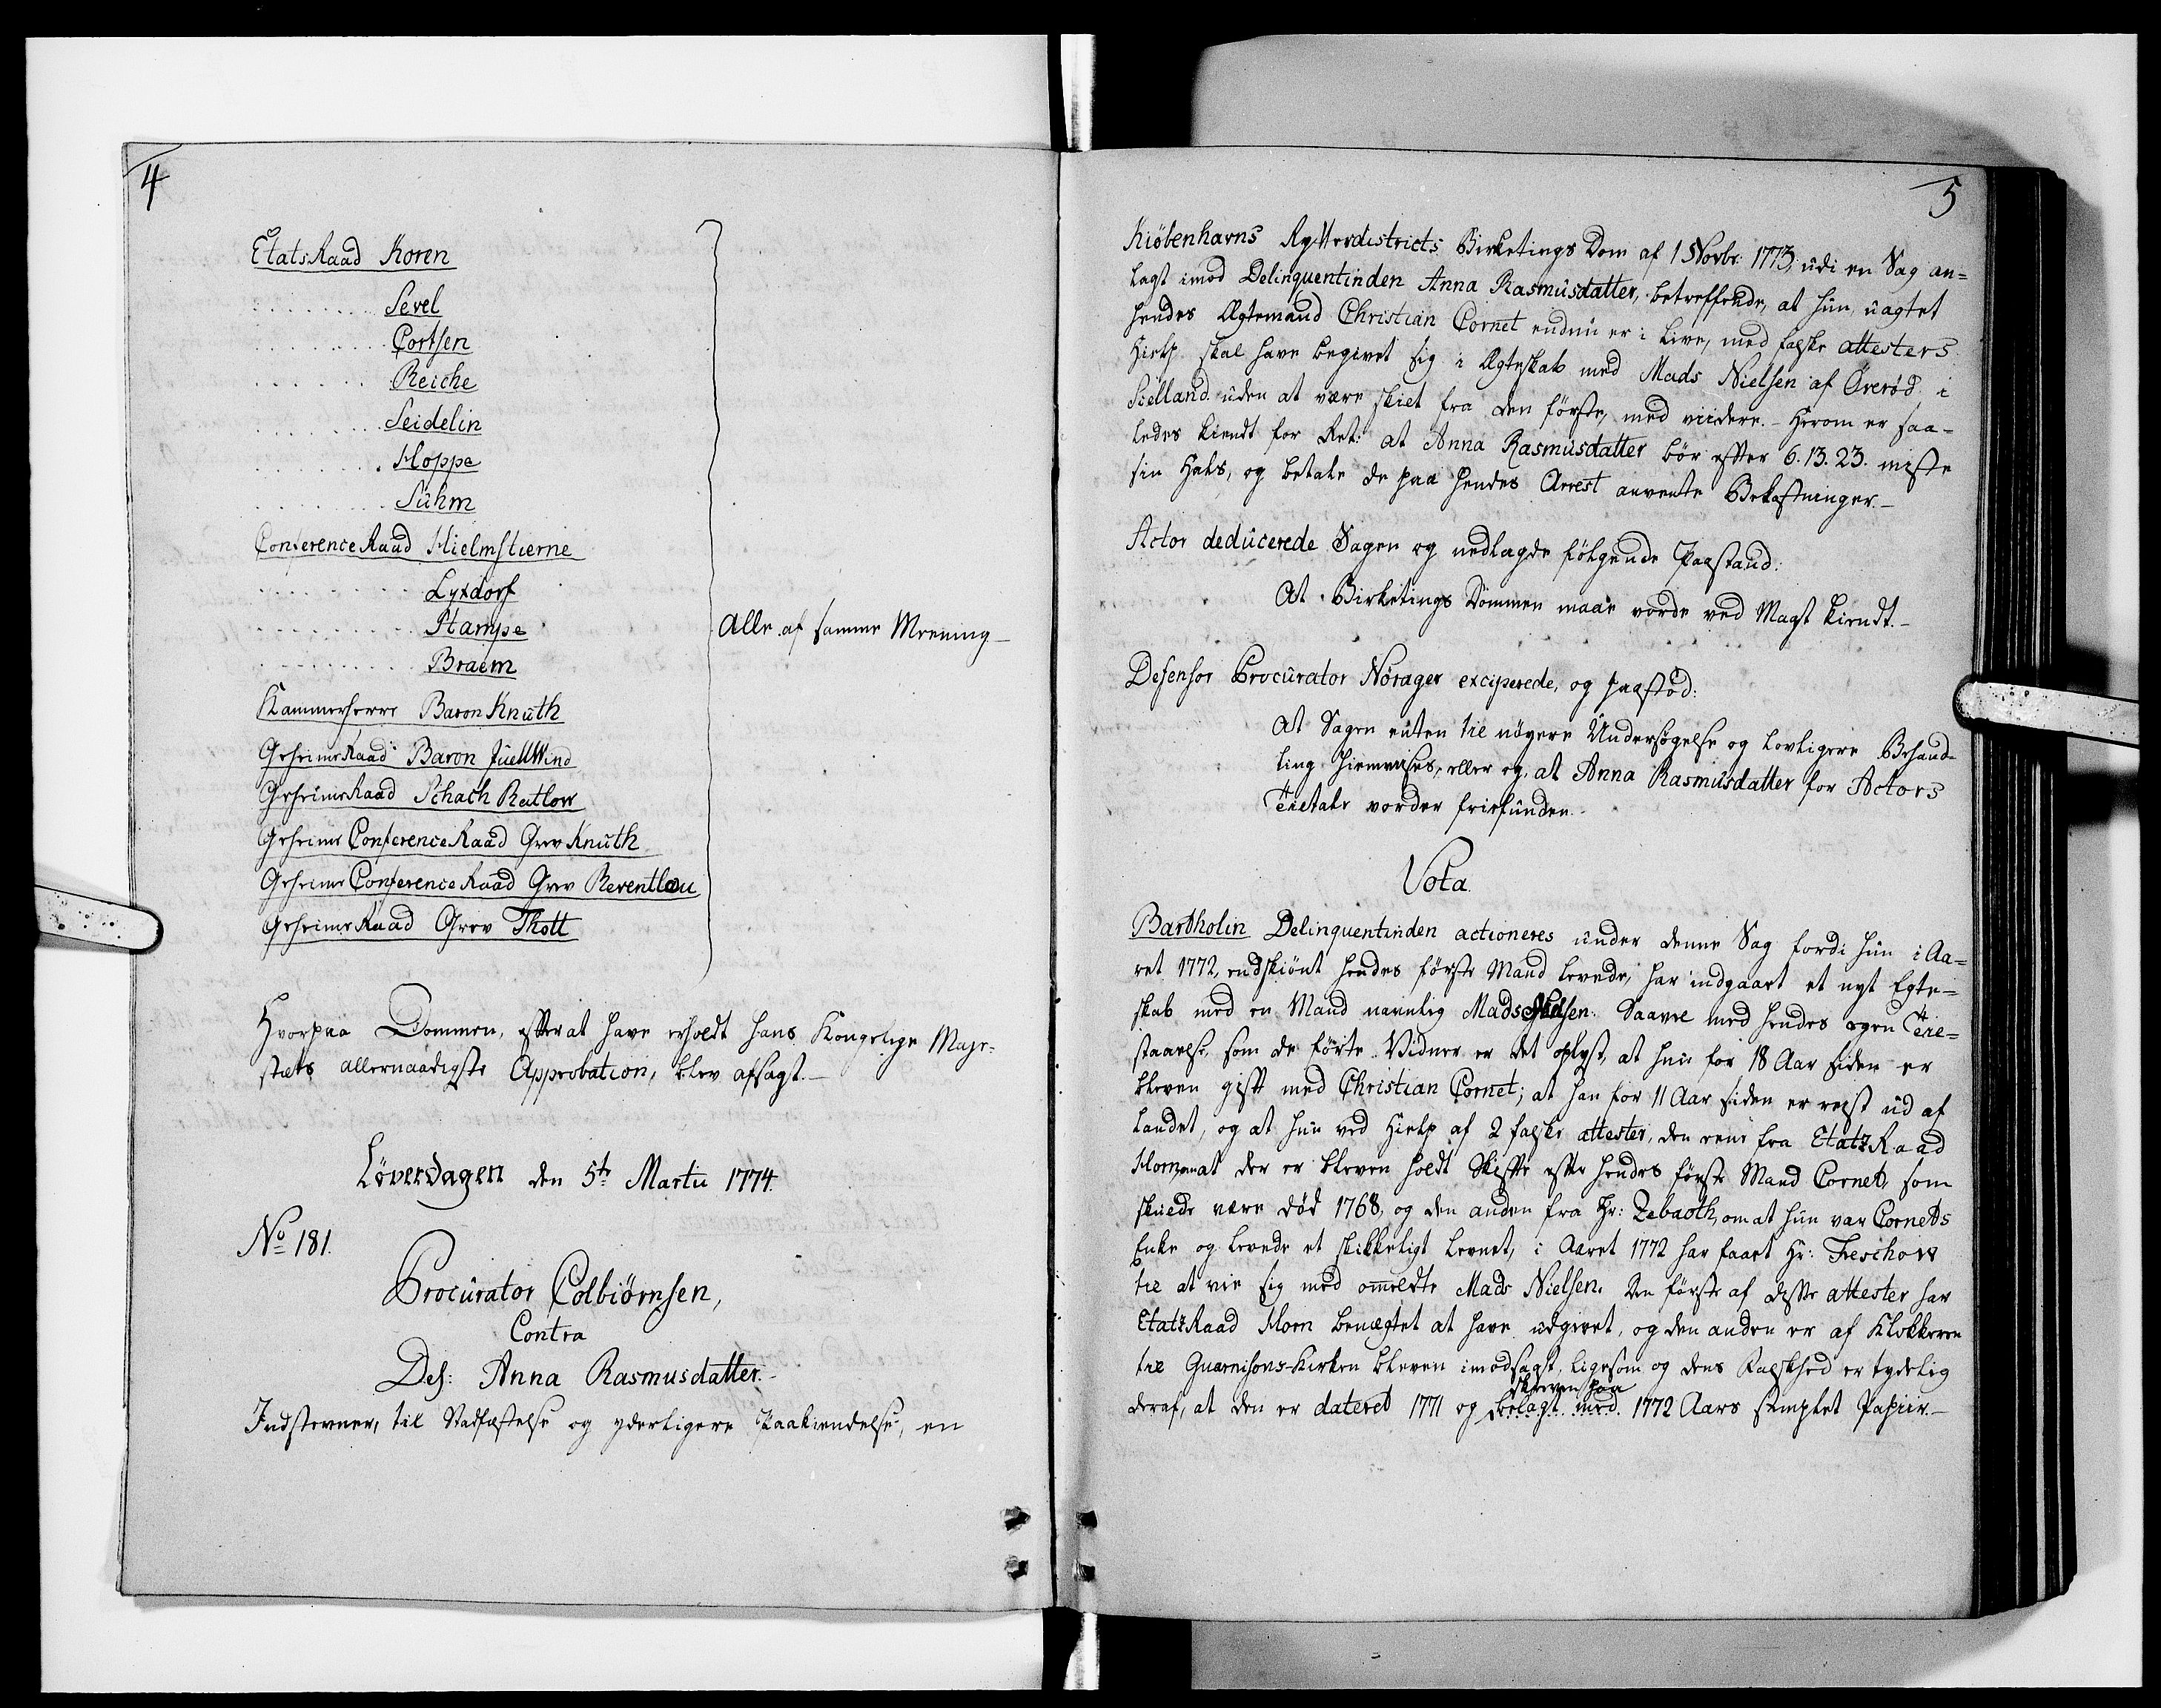 4
EtatsRaad Koren
. . . . . . . . Sevel
. . . . . . . . Cortsen
. . . . . . . Reiche
. . . . . . . Seidelin
. . . . . . . Hoppe
. . . . . . . Suhm
ConferenceRaad Hielmstierne
. . . . . . . . . Lyxdorf
. . . . . . . . . Stampe
. . . . . . . . . Braem
Alle af samme Meening
Kammerherre Baron Knuth
GeheimeRaad Baron Juell Wind
GeheimeRaad Schach Ratlow
Geheime ConferenceRaad Grev Knuth
Geheime ConferenceRaad Grev Reventlou
GeheimeRaad Grev Thott
Hvorpaa Dommen, efter at have erholdt Hans Kongelige Maje-
stæts allernaadigste Approbation, blev afsagt.
Löverdagen den 5te Martii 1774.
No 181.
Procurator Colbiörnsen,
Contra
Del: Anna Rasmusdatter.
Indstevner, til Stadfæstelse og yderligere Paakiendelse, en
5
Kiöbenhavns Rytterdistricts Birketings Dom af 1 Novbr: 1773, udi en Sag an-
lagt imod Delinquentinden Anna Rasmusdatter, betreffende, at hun, uagtet
hendes Ægtemand Christian Cornet endnu er i Live, med falske attesters
Hielp skal have begivet sig i Ægteskab med Mads Nielsen af Överöd i
Sielland uden at være skilt fra den förste, med viidere. Herom er saa-
ledes kiendt for Ret: at Anna Rasmusdatter bör efter 6. 13. 23. miste
sin Hals, og betale de paa hendes Arrest anvente Bekostninger.
Actor deducerede Sagen og nedlagde fölgende Paastand:
At Birketings Dommen maae vorde ved Magt kiendt.
Defensor Procurator Nörager exciperede, og paastod:
At Sagen enten til nöyere Undersögelse og lovligere Behand-
ling hiemvises, eller og, at Anna Rasmusdatter for Actors
Tiltale vorder frifunden.
Vota
Bartholin Delinquentinden actioneres under denne Sag fordi hun i Aa-
ret 1772, endskiönt hendes förste Mand levede, har indgaaet et nyt Egte-
skab med en Mand navnlig Mads Nielsen. Saavel med hendes egen Til-
staaelse, som de förte Vidner er det oplyst, at hun for 18 Aar siden er
bleven gift med Christian Cornet; at han for 11 Aar siden er reyst ud af
Landet, og at hun ved Hielp af 2 falske attester, den eene fra EtatzRaad
Horn, om at der er bleven holdt Skifte efter hendes förste Mand Cornet, som
skulde være död 1768, og den anden fra Hr: Zebaoth, om at hun var Cornets
Enke og levede et skikkeligt Levnet, i Aaret 1772 har faaet Hr: Treschow
til at vie sig med ommeldte Mads Nielsen. Den förste af disse attester har
EtatzRaad Horn benægtet at have udgivet, og den anden er af Klokkeren
til Guarnisons-Kirken bleven imodsagt, ligesom og dens Falskhed er tydelig
skreven paa
deraf, at den er dateret 1771 og belagt med 1772 Aars stemplet Papiir.